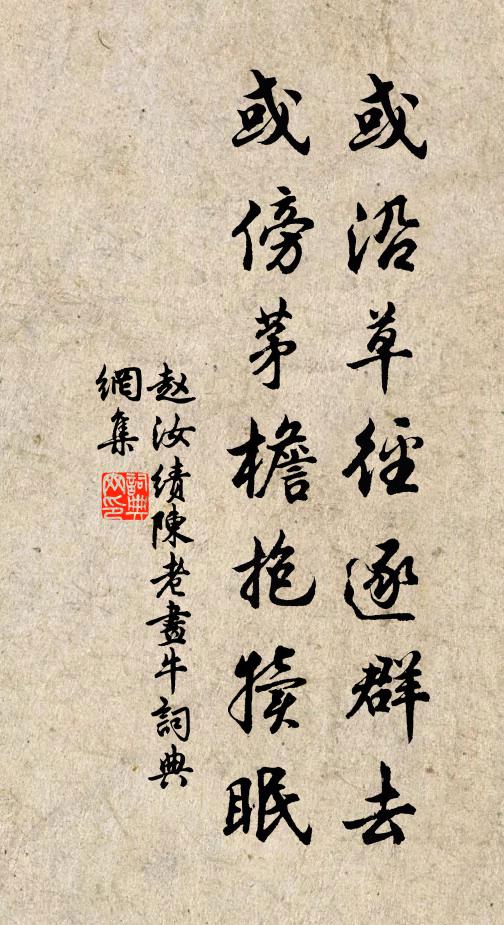 或沿草徑逐群去
或傍茅檐抱犢眠
赵汝績陳老畫牛詞典
網集
詞典
網印